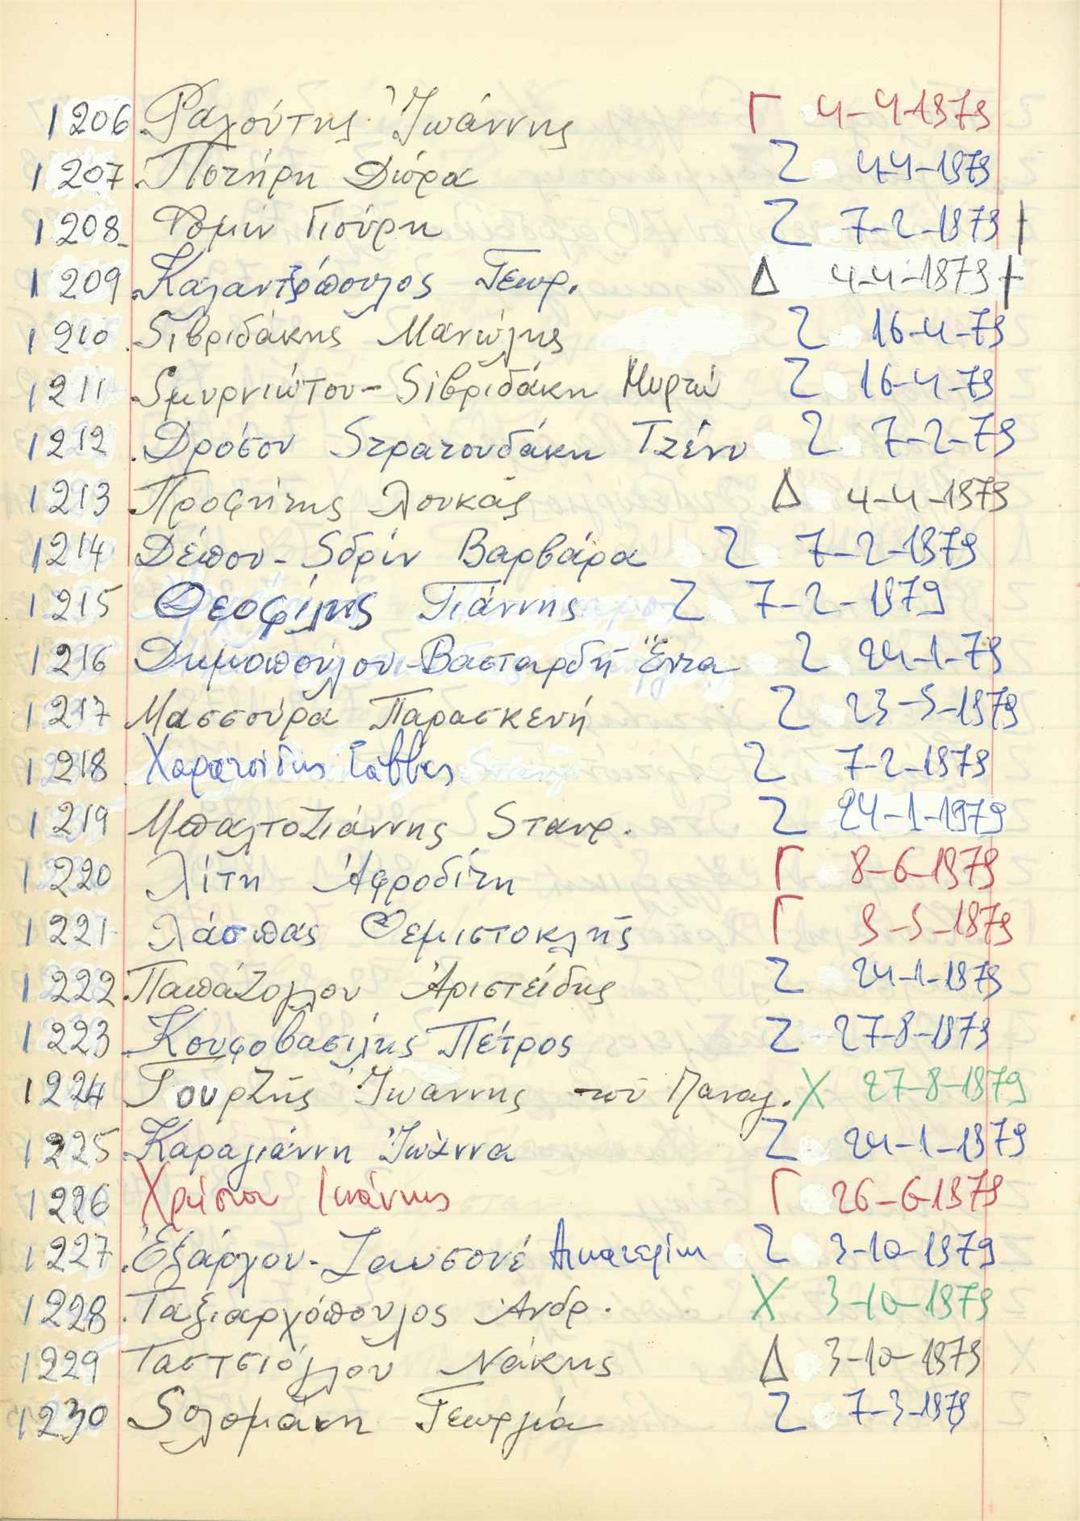 1206 Ραγούτης Ἰωάννης Γ 4-4-1979
1207 Ποτήρη Δώρα Ζ 4-4-1979
1208 Φομίν Γιούρη Ζ 7-2-1979 +
1209 Καλαντζόπουλος Γεωρ. Δ 4-4-1979 +
1210 Σιβριδάκης Μανώλης Ζ 16-4-79
1211 Σμυρνιώτου-Σιβριδάκη Μυρτώ Ζ 16-4-79
1212 Δρόσου Στρατουδάκη Τζένυ Ζ 7-2-79
1213 Προφήτης Λουκάς Δ 4-4-1979
1214 Δέπου-Σδρίν Βαρβάρα Ζ 7-2-1979
1215 Θεοφίλης Γιάννης Ζ 7-2-1979
1216 Δημοπούλου-Βασταρδῆ Ἔντα Ζ 24-1-79
1217 Μασσούρα Παρασκευή Ζ 23-5-1979
1218 Χαρατσίδης Σάββας Ζ 7-2-1979
1219 Μπαλτοζιάννης Σταυρ. Ζ 24-1-1979
1220 Λίτη Ἀφροδίτη Γ 8-6-1979
1221 Λάσπας Θεμιστοκλῆς Γ 9-5-1979
1222 Παπάζογλου Ἀριστείδης Ζ 24-1-1979
1223 Κουφοβασίλης Πέτρος Ζ 27-8-1979
1224 Γουρζῆς Ἰωαννης τοῦ Παναγ. Χ 27-8-1979
1225 Καραγιάννη Ἰωάννα Ζ 24-1-1979
1226 Χρήστου Ιωάννης Γ 26-6-1979
1227 Ἐξάρχου- Αικατερίνη Ζ 3-10-1979
1228 Ταξιαρχόπουλος Ἀνδρ. Χ 3-10-1979
1229 Ταστσιόγλου Νάκης Δ 3-10-1979
1230 Σολομάκη Γεωργία Ζ 7-3-1979